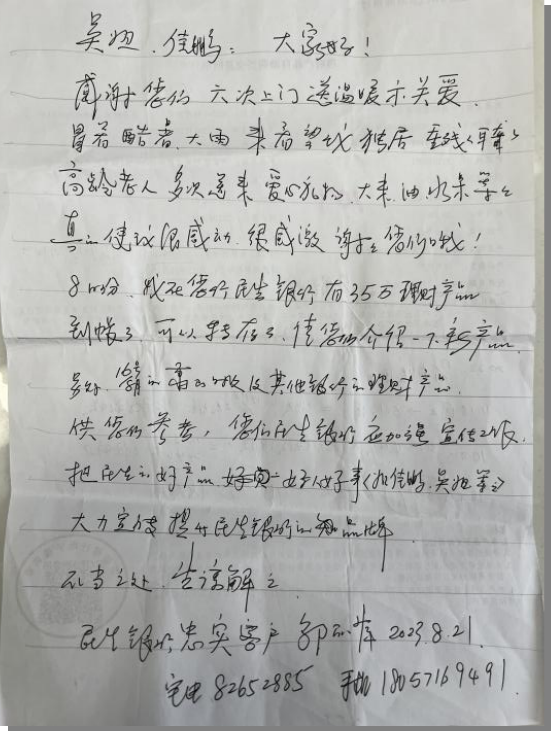 吴妲、佳鹏： 大家好！
感谢您们六次上门送温暖示关爱，
冒着酷暑、大雨来看望我独居
高龄老人 多次送来爱心礼物，大米、油、水果等等
真的使我很感动、很感激 谢谢您们哦！
8月份，我在您们民生银行有35万理财产品
到账了，可以转存了，请您们介绍一下新产品，
另外，
供您们参考，您们民生银行应加强宣传工作，
把民生的好产品、好人好事（如佳鹏、吴妲等）
大力宣传 提升民生银行的品牌
不当之处，望谅解之
民生银行忠实客户 2023.8.21.
宅电 82652885 手机 18057169491.